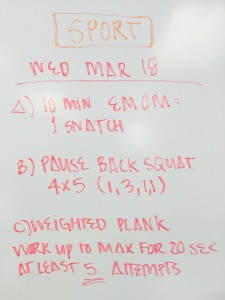 SPORT
WED MAR 18
A) 10 MIN EMOM:
1 SNATCH
B) PAUSE BACK SQUAT
4x5 (1,3,1,1)
C) WEIGHTED PLANK
WORK UP to MAX FOR 20 SEC
AT LEAST 5 ATTEMPTS